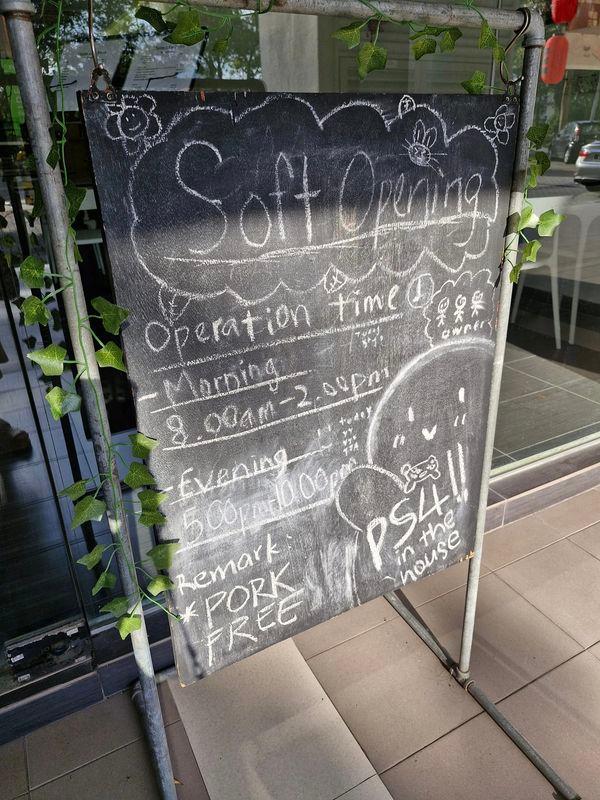 Soft Opening
Operation time
owners
- Morning
8.00am - 2.00pm
- Evening
5.00pm - 10.00pm
PS4!!
in the
house
Remark:
* PORK
FREE